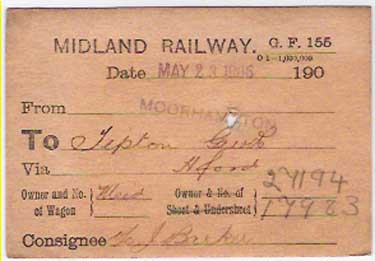 MIDLAND RAILWAY. G. F. 155
0 1—1,000,000
Date MAY 23 1906 190
From MOORHAMPTON
To Tipton
Via H'ford
Owner and No. of Wagon
Owner & No. of Sheet & Undersheet
27194
17983
Consignee